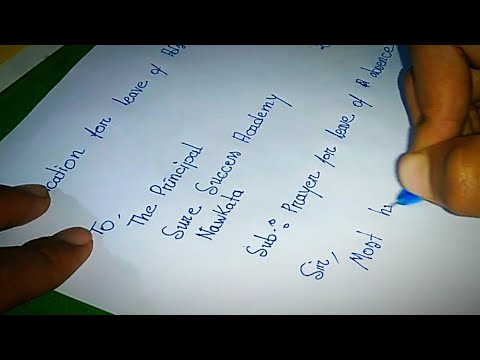 cation for leave of Abs
To,
The Principal
Sure Success Academy
Nawkata
Sub:: Prayer for leave of absence
Sir,
Most h